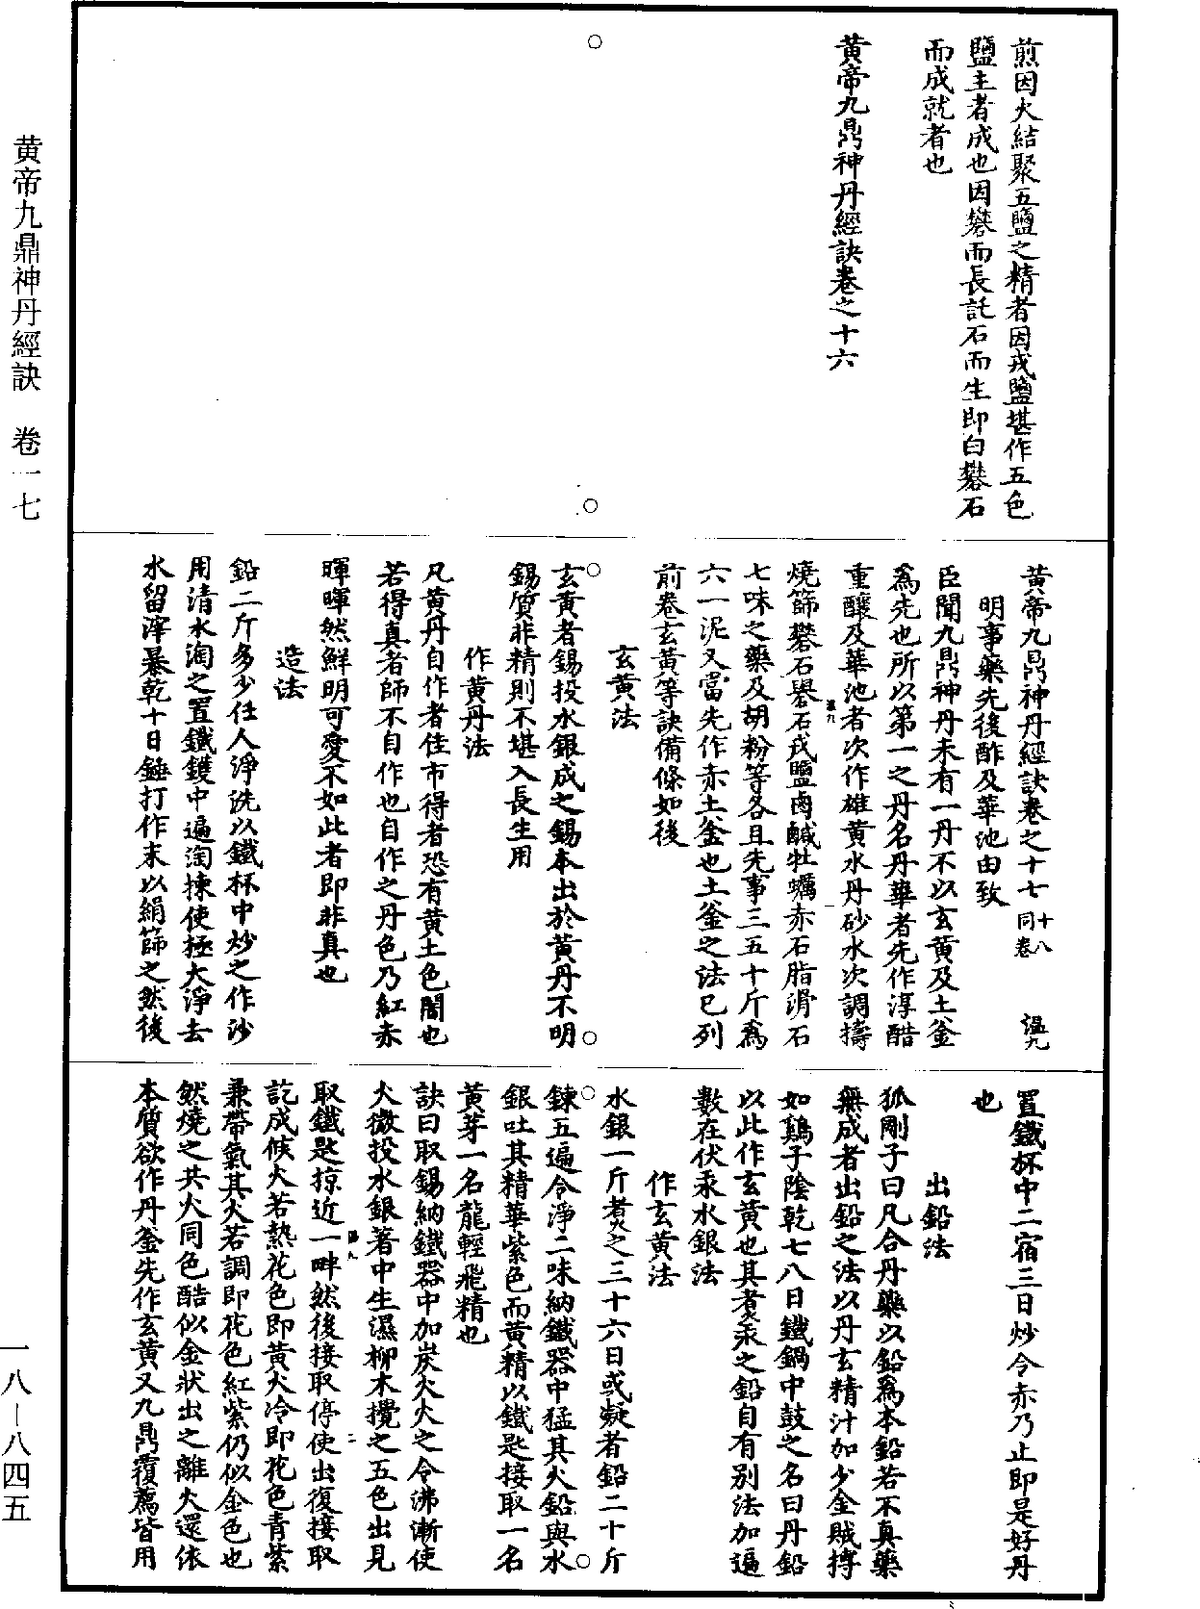 煎因火結聚五鹽之精者因戎鹽堪作五色
鹽主者成也因礬而長託石而生即白礬石
而成就者也
黄帝九鼎神丹經訣卷之十六
黄帝九鼎神丹經訣卷之十七 十八同卷 温九
明事藥先後酢及華池由致
臣聞九鼎神丹未有一丹不以玄黄及土釜
爲先也所以第一之丹名丹華者先作淳醋
重釀及華池者次作雄黄水丹砂水次調擣
燒篩礬石礜石戎鹽鹵鹹牡蠣赤石脂滑石
七味之藥及胡粉等各且先事三五十斤爲
六一泥又當先作赤土釜也土釜之法已列
前卷玄黄等訣備條如後
玄黄法
玄黄者錫投水銀成之錫本出於黄丹不明
錫質非精則不堪入長生用
作黄丹法
凡黄丹自作者佳市得者恐有黄土色闇也
若得真者師不自作也自作之丹色乃紅赤
暉暉然鮮明可愛不如此者即非真也
造法
鉛二斤多少任人淨洗以鐵杯中炒之作沙
用清水淘之置鐵鑊中遍淘揀使極大淨去
水留滓暴乾十日錘打作末以絹篩之然後
置鐵杯中二宿三日炒令赤乃止即是好丹
也
出鉛法
狐剛子曰凡合丹藥以鉛爲本鉛若不真藥
無成者出鉛之法以丹玄精汁加少金賊摶
如鷄子陰乾七八日鐵鍋中鼓之名曰丹鉛
以此作玄黄也其煮汞之鉛自有别法加遍
數在伏汞水銀法
作玄黄法
水銀一斤煮之三十六日或凝者鉛二十斤
鍊五遍令淨二味納鐵器中猛其火鉛與水
銀吐其精華紫色而黄精以鐵匙接取一名
黄芽一名龍輕飛精也
訣曰取錫納鐵器中加炭火火之令沸漸使
火微投水銀著中生濕柳木攪之五色出見
取鐵匙掠近一畔然後接取停使出復接取
訖成候火若熱花色即黄火冷即花色青紫
兼帶氣其火若調即花色紅紫仍似金色也
然燒之共火同色酷似金狀出之離火還依
本質欲作丹釜先作玄黄又九鼎覆薦皆用
黄帝九鼎神丹經訣 卷一七
一八—八四五